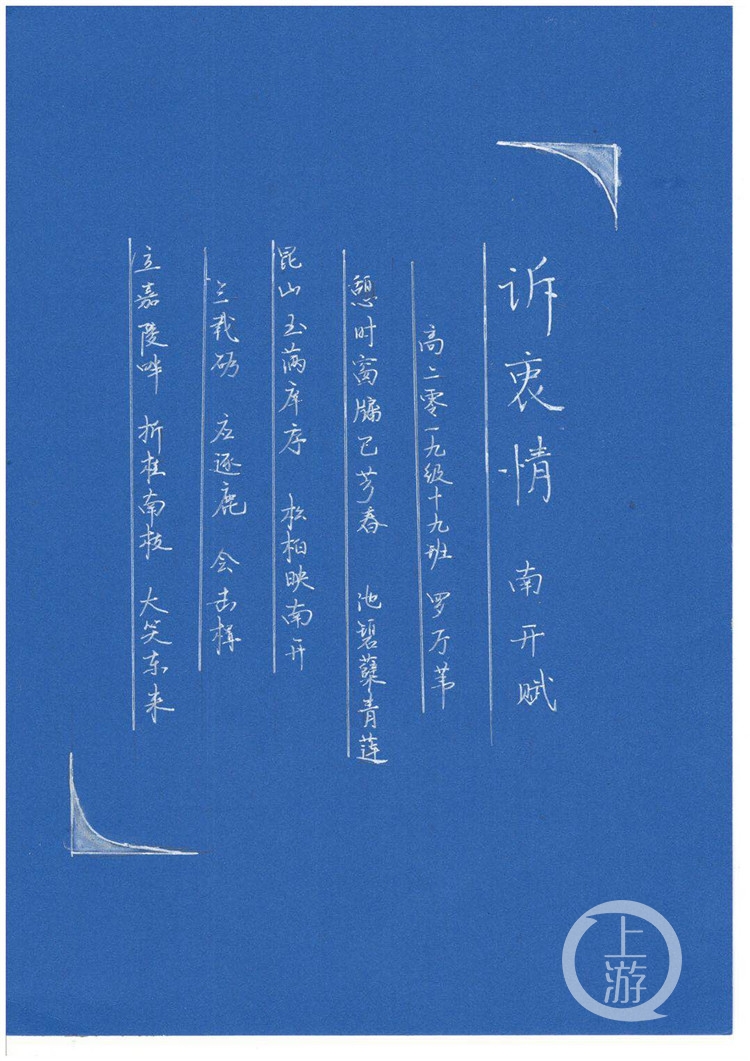 诉衷情 南开赋
高二零一九级十九班 罗万苇
憩时窗牖已芳春 池碧蘖青莲
昆山玉满庠序 松柏映南开
三载砺 应逐鹿 会击楫
立嘉陵畔 折桂南枝 大笑东来
上游